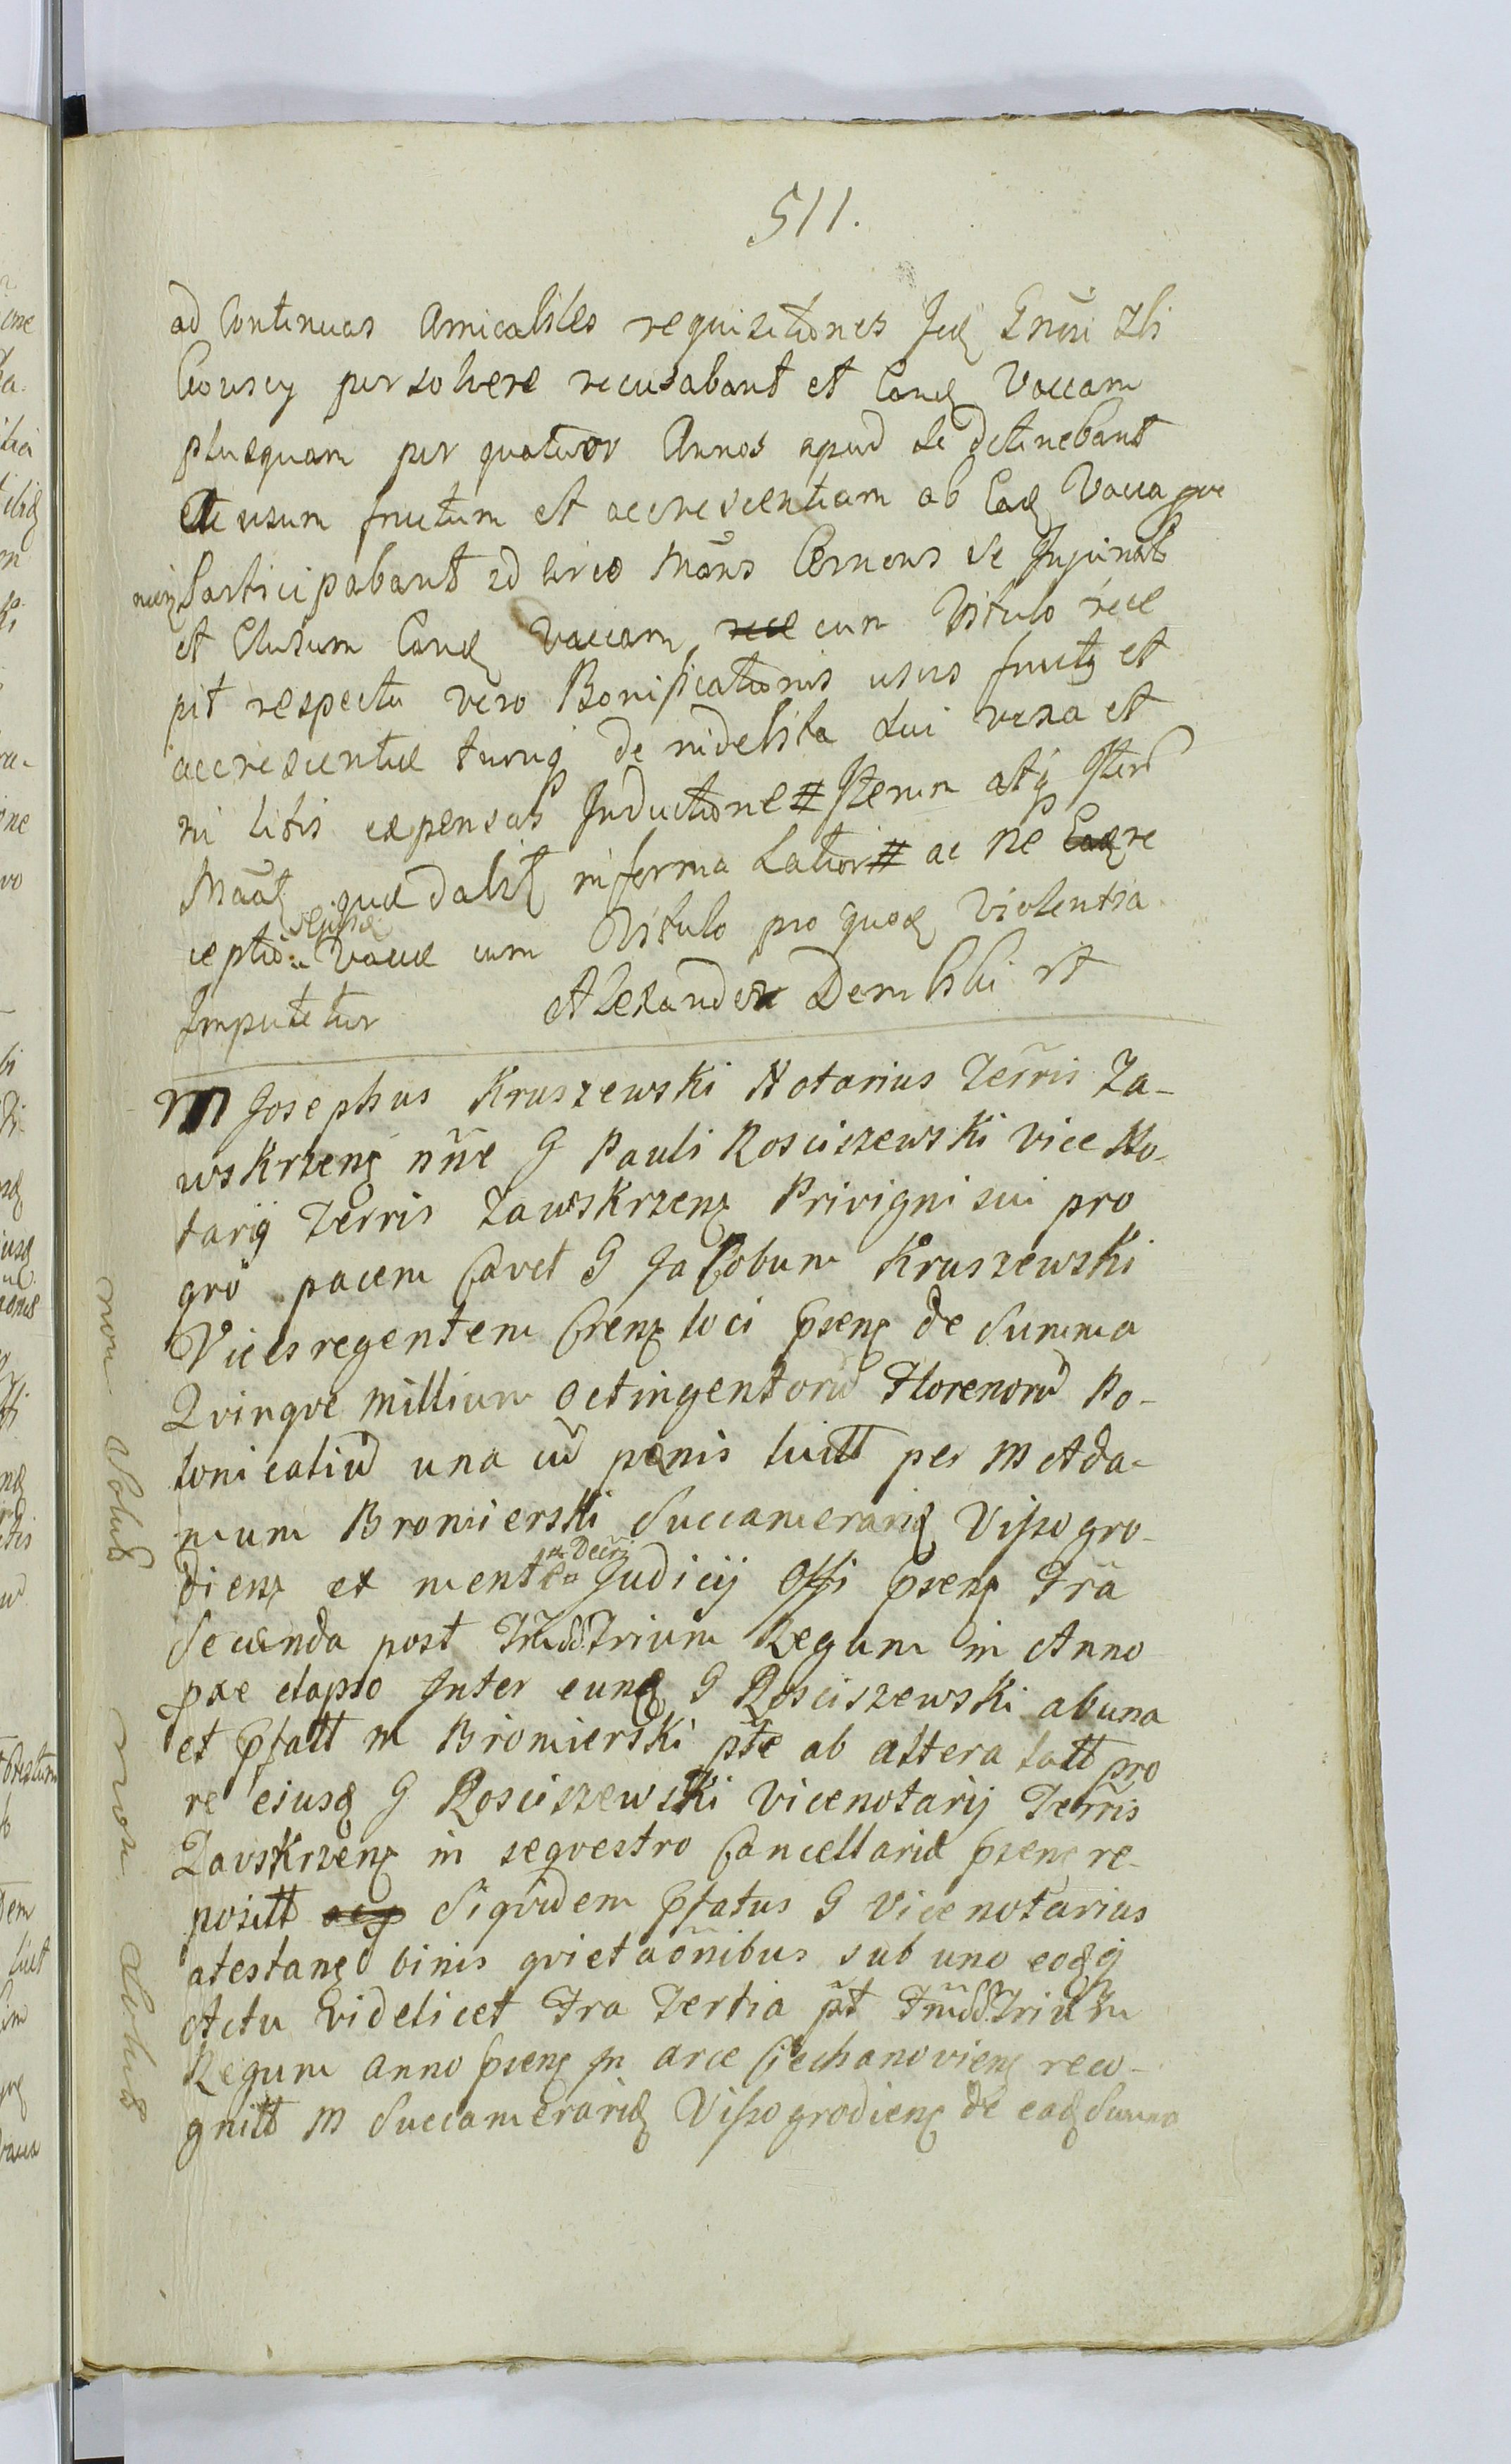 511.
ad Continuas Amicabiles requisitiones
persolvere recusabant et Eand Vaccam
plusquam per quatuor Annos apud se detinebant
usum fructum et accrescentiam ab Ead Vacca
Participabant id circo Mãns Cernens se Injuriatũ
et Elusum Eand Vaccam cum Vitulo rece
pit respectu vero Bonificationis usus fructq et
accrescentiæ de indebita sui vexa et
ni litis expensas Inductione # Iterum atq Iterũ
quæ dabit in forma Latiori # ac ne re
ceptio Vaccæ cum Vitulo pro quad Violentia
Imputetur Alexander Dembski
M Josephus Kruszewski Notarius Terris Za-
wskrzenę nñe G Pauli Rosciszewski Vice No-
tarij Terris Zawskrzenę Privigni sui pro
grõ pacem Cavet G Jacobum Kruszewski
Vicesregentem Crenę loci psenę de Summa
Qvinqve Millium Octingentorũ Florenorũ Po-
lonicaliũ una cũ pænis luitt per M Ada-
mum Bromierski Succamerarid Viszogro-
dienę ex mente Decri Judicij Offi psenę Fra
Secunda post Trium Regum in Anno
præ elapso Inter eund G Rosciszewski ab una
et pfatt M Bromierski pte ab altera latt pro
re ejusd G Rosciszewski Vicenotarij Terris
Zavskrzenę in seqvestro Cancellariæ psenę re-
positt Siqvidem pfatus G Vicenotarius
atestand binis qvietaõnibus sub uno eodq
Actu videlicet Fra Tertia pt Trium
Regum anno psenę In arce Ciechanovienę reco-
gnitt M Succamerarid Viszogrodienę de ead Summa
non Solus
non Solus